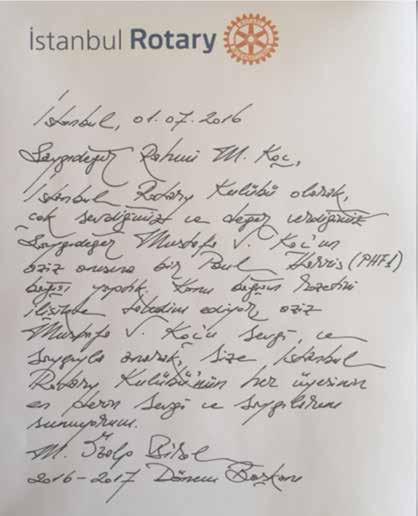 İstanbul Rotary
İstanbul, 01.07.2016
Saygıdeğer Rahmi M. Koç,
İstanbul Rotary Kulübü olarak,
çok sevdiğimiz ve değer verdiğimiz
Saygıdeğer Mustafa V. Koç'un
aziz anısına bir Paul Harris (PHF1)
bağışı yaptık. Konu bağışın rozetini
ilişikte takdim ediyor, aziz
Mustafa V. Koç'u sevgi ve
saygıyla anarak, size İstanbul
Rotary Kulübü'nün her üyesinin
en derin sevgi ve saygılarını
sunuyorum.
M. Özalp Birol
2016-2017 Dönem Başkanı